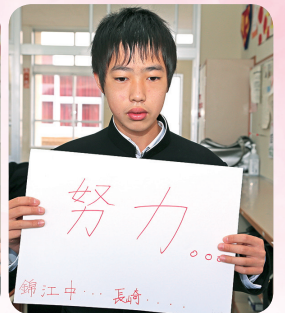 努力。。。
錦江中・・・長崎・・・・